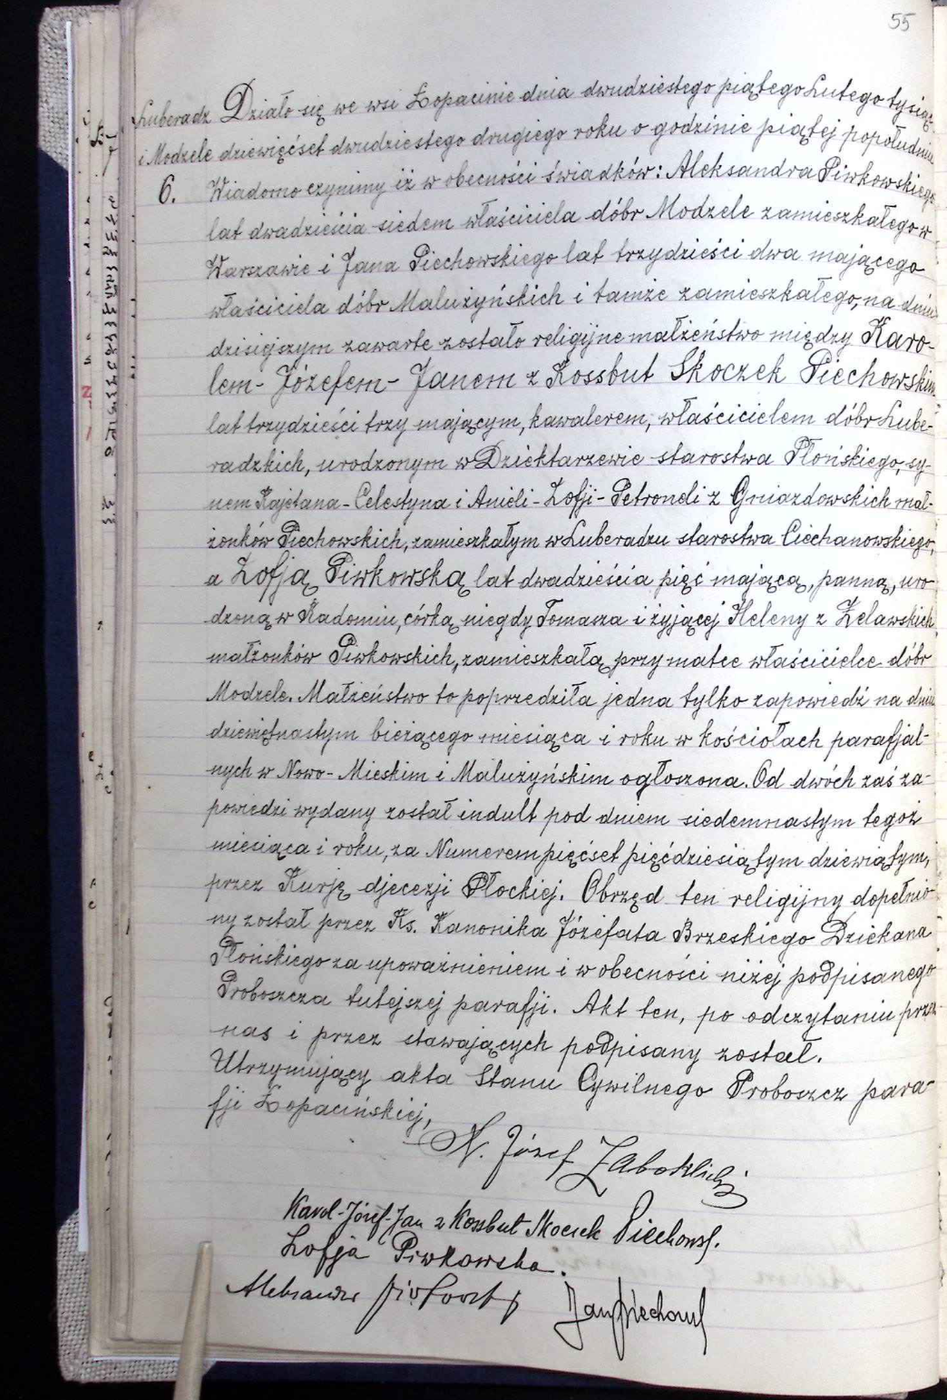 55
Luberadz Działo się we wsi Łopacinie dnia dwudziestego piątego Lutego tysiąc
i Modzele dziewięćset dwudziestego drugiego roku o godzinie piątej popołudniu
6. Wiadomo czynimy iż w obecności świadków: Aleksandra Piwkowskiego
lat dwadzieścia siedem właściciela dóbr Modzele zamieszkałego w
Warszawie i Jana Piechowskiego lat trzydzieści dwa mającego
właściciela dóbr Malużyńskich i tamże zamieszkałego, na dniu
dzisiejszym zawarte zostało religijne małżeństwo między Karo-
lem - Józefem - Janem z Kossbut Skoczek Piechowskim
lat trzydzieści trzy mającym, kawalerem, właścicielem dóbr Lube-
radzkich, urodzonym w Dziektarzewie starostwa Płońskiego, sy-
nem Kajetana - Celestyna i Anieli - Zofji - Petroneli z Gniazdowskich mał-
żonków Piechowskich, zamieszkałym w Luberadzu starostwa Ciechanowskiego,
a Zofją Piwkowską lat dwadzieścia pięć mającą, panną, uro-
dzoną w Radomiu, córką niegdy Tomasza i żyjącej Heleny z Zelawskich
małżonków Piwkowskich, zamieszkałą przy matce właścicielce dóbr
Modzele. Małżeństwo to poprzedziła jedna tylko zapowiedź na dniu
dziewiętnastym bieżącego miesiąca i roku w kościołach parafjal-
nych w Nowo - Mieskim i Malużyńskim ogłoszona. Od dwóch zaś za-
powiedzi wydany został indult pod dniem siedemnastym tegoż
miesiąca i roku, za Numerem pięćset pięćdziesiątym dziewiątym,
przez Kurję djecezji Płockiej. Obrzęd ten religijny dopełnio-
ny został przez Ks. Kanonika Józefata Brzeskiego Dziekana
Płońskiego za upoważnieniem i w obecności niżej podpisanego
Proboszcza tutejszej parafji. Akt ten, po odczytaniu przez
nas i przez stawających podpisany został.
Utrzymujący akta Stanu Cywilnego Proboszcz para-
fji Łopacińskiej,
X. Józef Zabok
Karol-Józef-Jan z Kossbut Skoczek Piechowsk.
Zofja Piwkowska.
Aleksander Piwkowski Jan Piechowsk